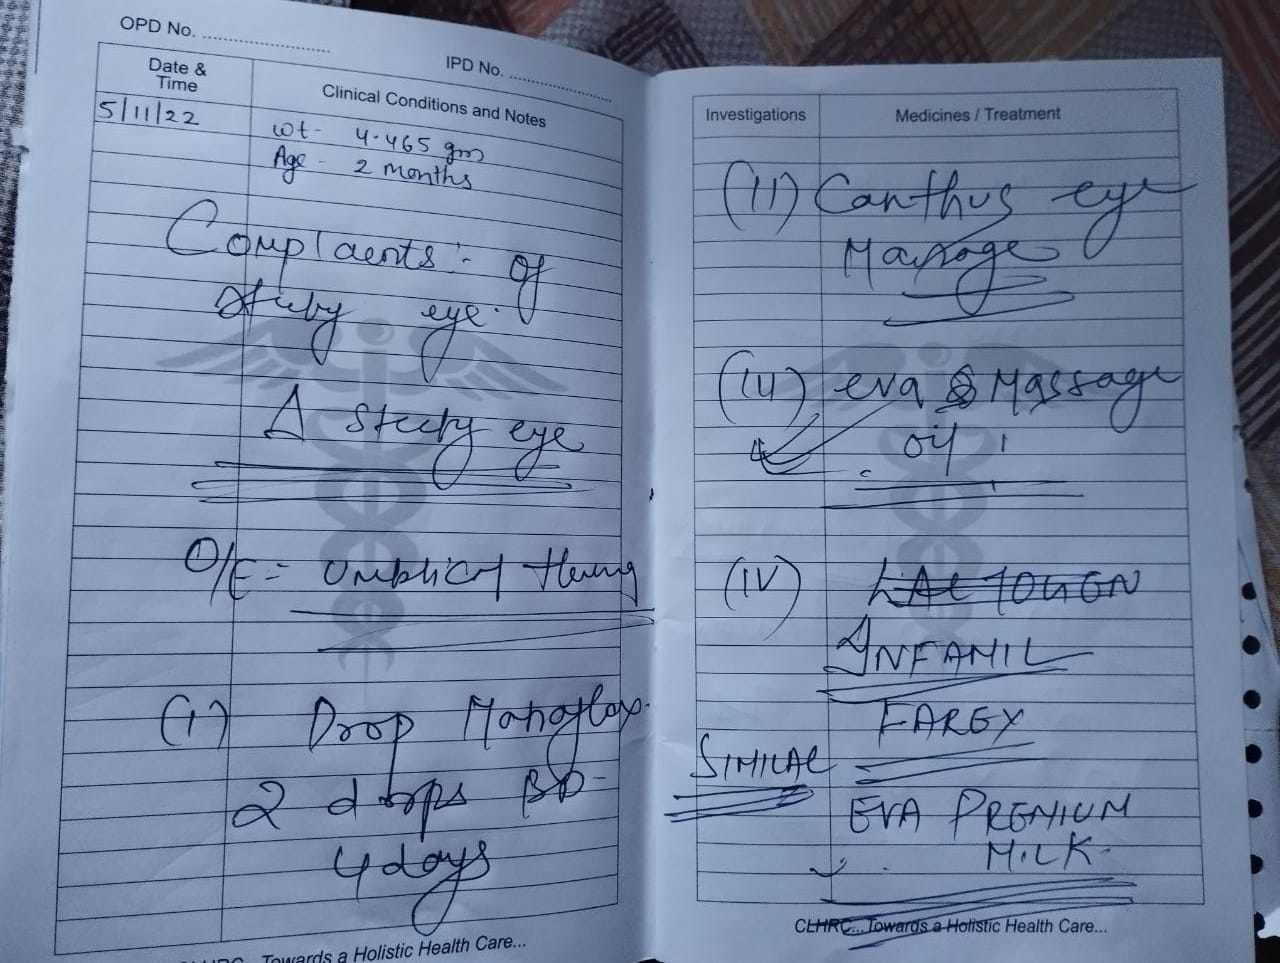 OPD No. ..............................
IPD No. ..............................
Date & Time
Clinical Conditions and Notes
5/11/22
wt - 4.465 gm
Age - 2 months
Complaents :- of
eye.
Δ Sticky eye
O/E = Umblical
(I) Drop
2 drops BD -
4 days
Investigations
Medicines / Treatment
(II) Canthus eye
Massage
(III) eva Massage
oil
(IV)
INFAMIL
FAREX
SIMILAC
EVA PREMIUM
MILK
Towards a Holistic Health Care...
CLHRC...Towards a Holistic Health Care...